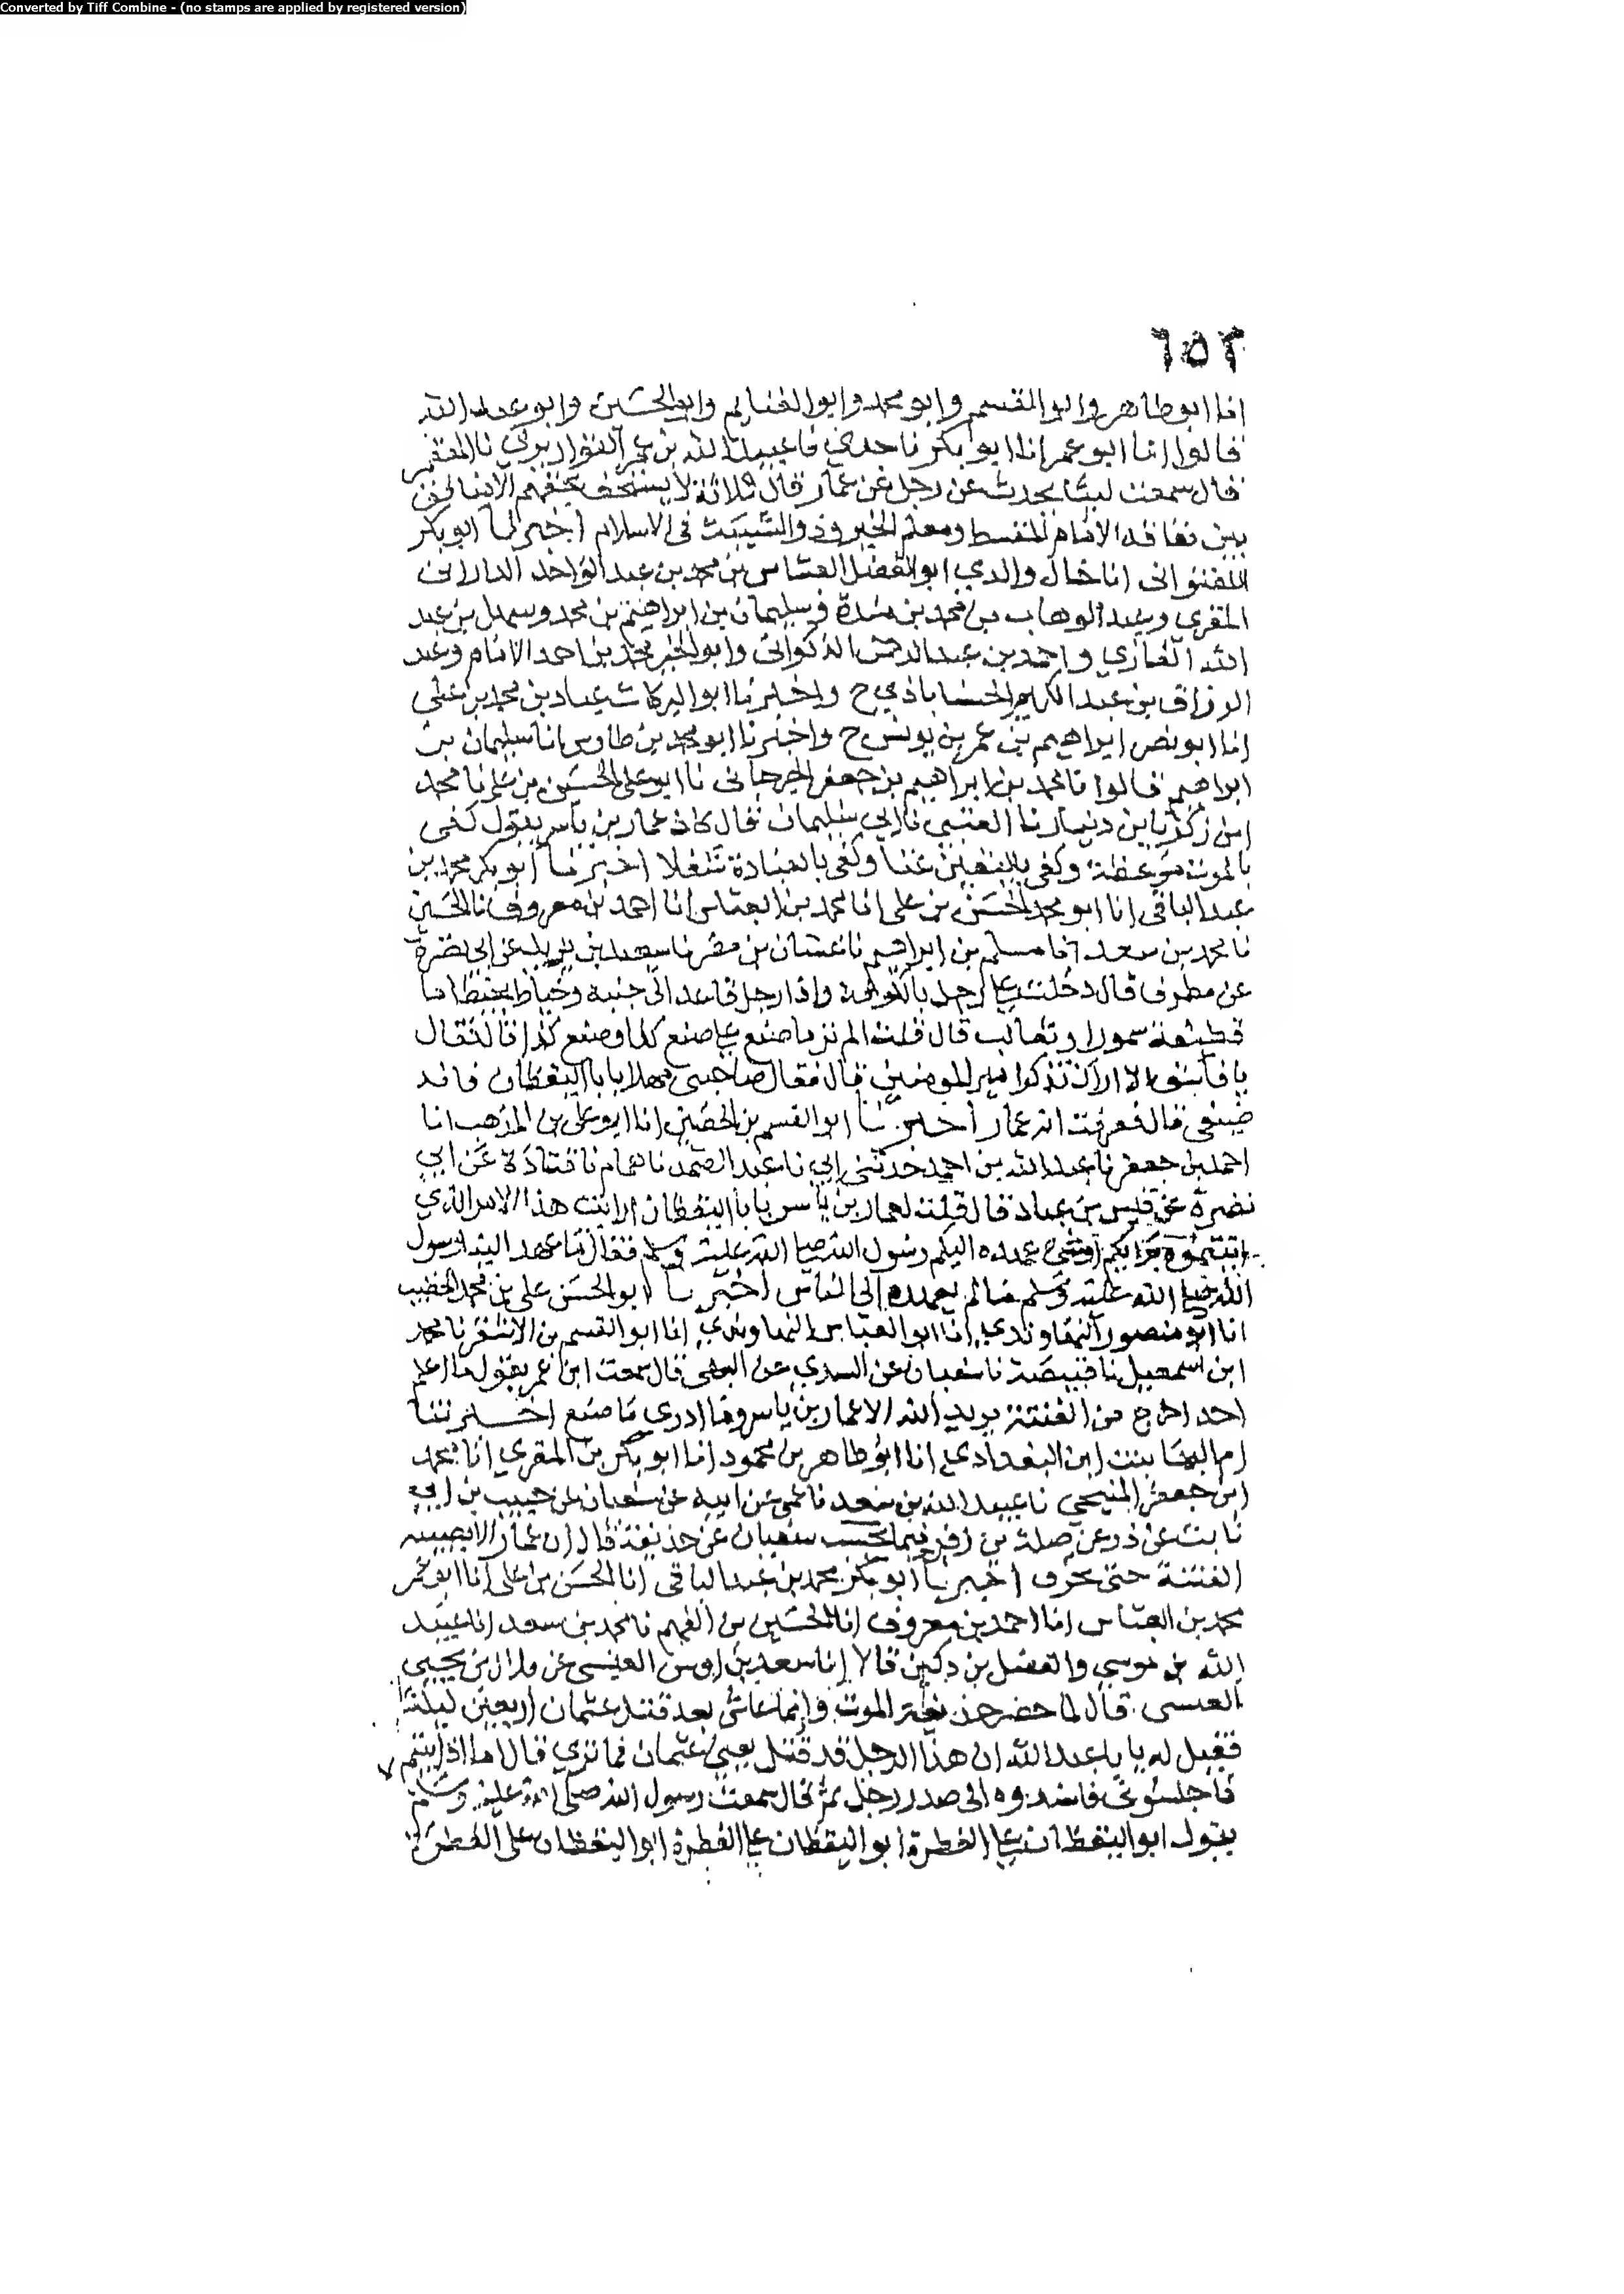 Converted by Tiff Combine - (no stamps are applied by registered version)
٦٥٣
انا ابو طاهر وابو القسم وابو محمد وابو الغنايم وابو الحسين وابو عبد الله
قالوا انا ابو عمر انا ابو بكر نا جدي نا عبيد الله بن عمر القواريري نا المعتمر
قال سمعت ليثا يحدث عن رجل عن عمار قال ثلاثة لا يستخف بحقهم الا منافق
بين نفاقه الامام المقسط ومعلم الخير وذو الشيبة في الاسلام اخبرنا ابو بكر
اللفتواني انا خال والدي ابو الفضل العباس بن محمد بن عبد الواحد الداراني
المقري وعبد الوهاب بن محمد بن مندة وسليمان بن ابراهيم بن محمد وسهل بن عبد
الله الغازي واحمد بن عبد الرحمن الذكواني وابو الخير محمد بن احمد الامام وعبد
الرزاق بن عبد الكريم الحسناباذي ح واخبرنا ابو البركات عباد بن محمد بن علي
انا ابو نصر ابراهيم بن عمر بن يونس ح واخبرنا ابو محمد بن طاوس انا سليمان بن
ابراهيم قالوا نا محمد بن ابراهيم بن جعفر الجرجاني نا ابو علي الحسين بن علي نا محمد
ابن زكريا بن دينار نا العتبي نا ابي سليمان قال كان عمار بن ياسر يقول كفى
بالموت موعظة وكفى باليقين غنا وكفى بالعبادة شغلا اخبرنا ابو بكر محمد بن
عبد الباقي انا ابو محمد الحسن بن علي انا محمد بن العباس انا احمد بن معروف نا الحسين
نا محمد بن سعد انا مسلم بن ابراهيم نا غسان بن مضر نا سعيد بن يزيد عن ابي نضرة
عن مطرف قال دخلت على رجل بالكوفة واذا رجل قاعد الى جنبه وخياط يخيط اما
قطيفة سمور او ثعالب قال قلت الم تر ما صنع علي صنع كذا وصنع كذا قال فقال
يا فاسق الا اراك تذكر امير المومنين قال فقال صاحبي مهلا يا با اليقظان فانه
ضيفي قال فعرفت انه عمار اخبرنا ابو القسم بن الحصين انا ابو علي بن المذهب انا
احمد بن جعفر نا عبد الله بن احمد حدثني ابي نا عبد الصمد نا همام نا قتادة عن ابي
نضرة عن قيس بن عباد قال قلت لعمار بن ياسر يا با اليقظان ارايت هذا الامر الذي
اتيتموه برايكم او شي عهده اليكم رسول الله صلى الله عليه وسلم فقال ما عهد الينا رسول
الله صلى الله عليه وسلم ما لم يعهده الى الناس اخبرنا ابو الحسن علي بن محمد الخطيب
انا ابو منصور النهاوندي انا ابو العباس النهاوندي انا ابو القسم بن الاشقر نا محمد
ابن اسمعيل نا قبيصة نا سفيان عن السدي عن البهي قال سمعت ابن عمر يقول ما اعلم
احد اخرج من الفتنة يريد الله الا عمار بن ياسر وما ادري ما صنع اخبرتنا
ام البها بنت ابن البغدادي انا ابو طاهر بن محمود انا ابو بكر بن المقري انا محمد
ابن جعفر المنبجي نا عبيد الله بن سعد نا عمي عن ابيه عن سفيان عن حبيب بن ابي
ثابت عن ذر عن صلة بن زفر فيما يحسب سفيان عن حذيفة قال ان عمارا لا يصيبه
الفتنة حتى يخرف اخبرنا ابو بكر محمد بن عبد الباقي انا الحسن بن علي انا ابو عمر
محمد بن العباس انا احمد بن معروف انا الحسين بن الفهم نا محمد بن سعد انا عبيد
الله بن موسى والفضل بن دكين قالا انا سعد بن اوس العبسي عن بلال بن يحيى
العبسي قال لما حضر حذيفة الموت وانما عاش بعد قتل عثمان اربعين ليلة
فقيل له يا با عبد الله ان هذا الرجل قد قتل يعني عثمان فما ترى قال اما اذ ابيتم
فاجلسوني فاسندوه الى صدر رجل ثم قال سمعت رسول الله صلى الله عليه وسلم
يقول ابو اليقظان على الفطرة ابو اليقظان على الفطرة ابو اليقظان على الفطرة